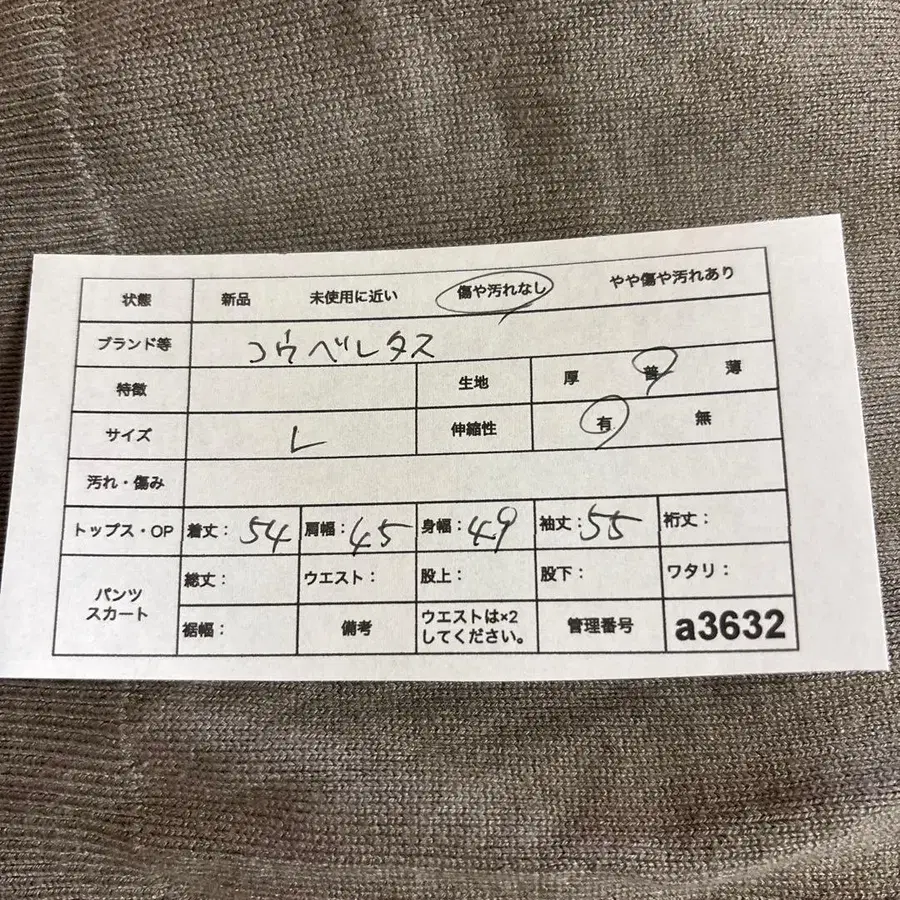 状態 新品 未使用に近い 傷や汚れなし やや傷や汚れあり
ブランド等 コウベレタス
特徴 生地 厚 普 薄
サイズ L 伸縮性 有 無
汚れ・傷み
トップス・OP 着丈: 54 肩幅: 45 身幅: 49 袖丈: 55 裄丈:
パンツ
スカート
総丈: ウエスト: 股上: 股下: ワタリ:
裾幅: 備考 ウエストは×2
してください。 管理番号 a3632